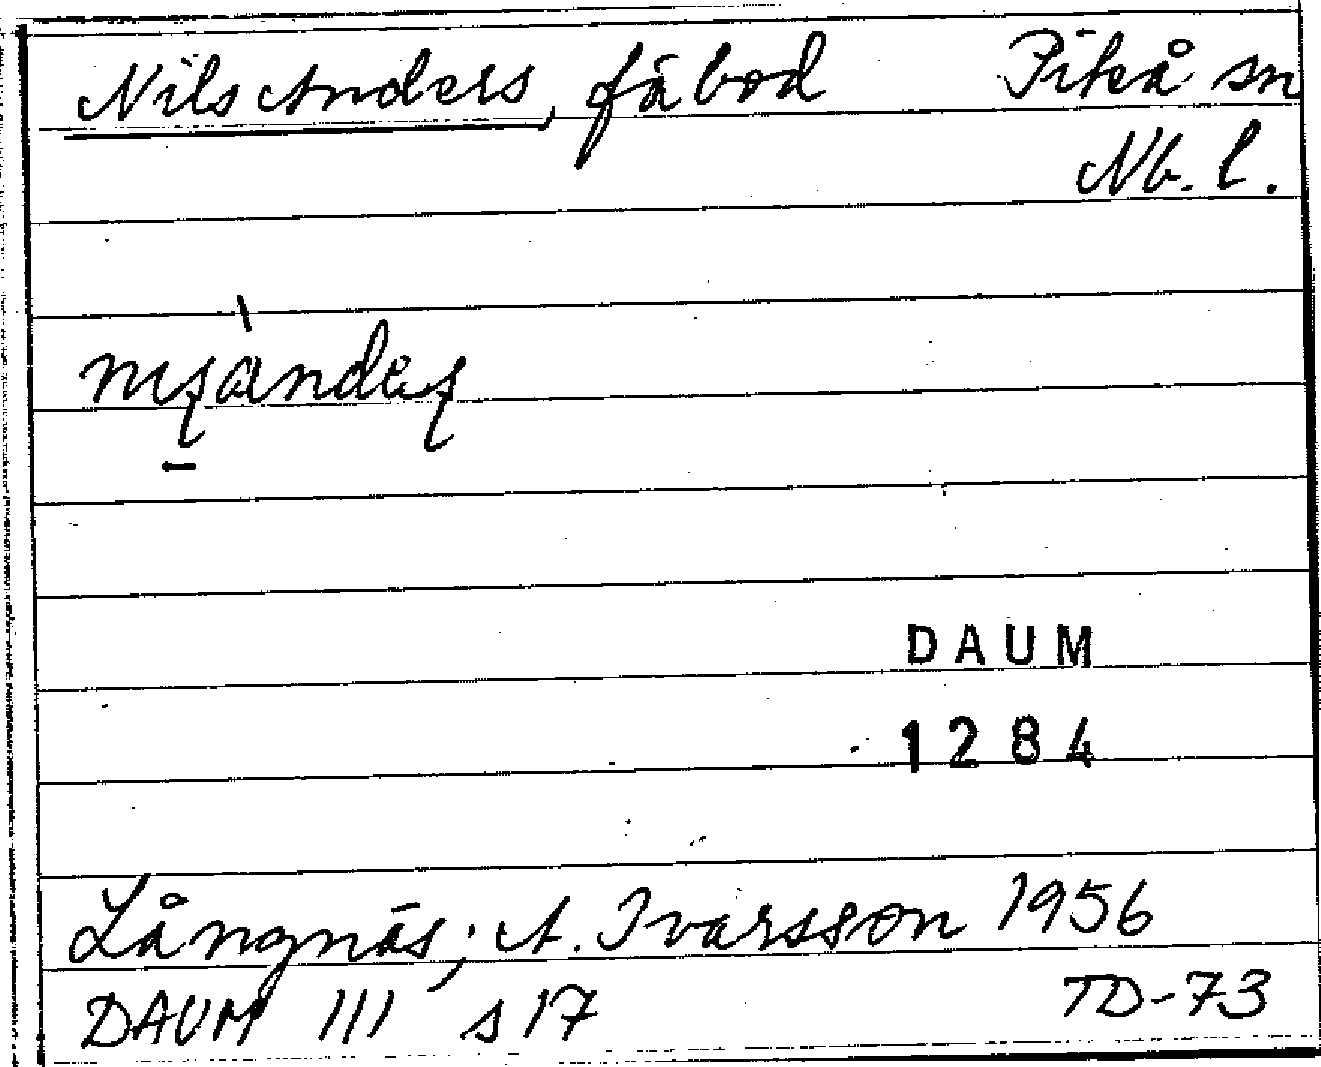 Nils Anders, fäbod Piteå sn
Nb. l.
DAUM
1284
Långnäs; A. Ivarsson 1956
DAUM III s 17 TD-73